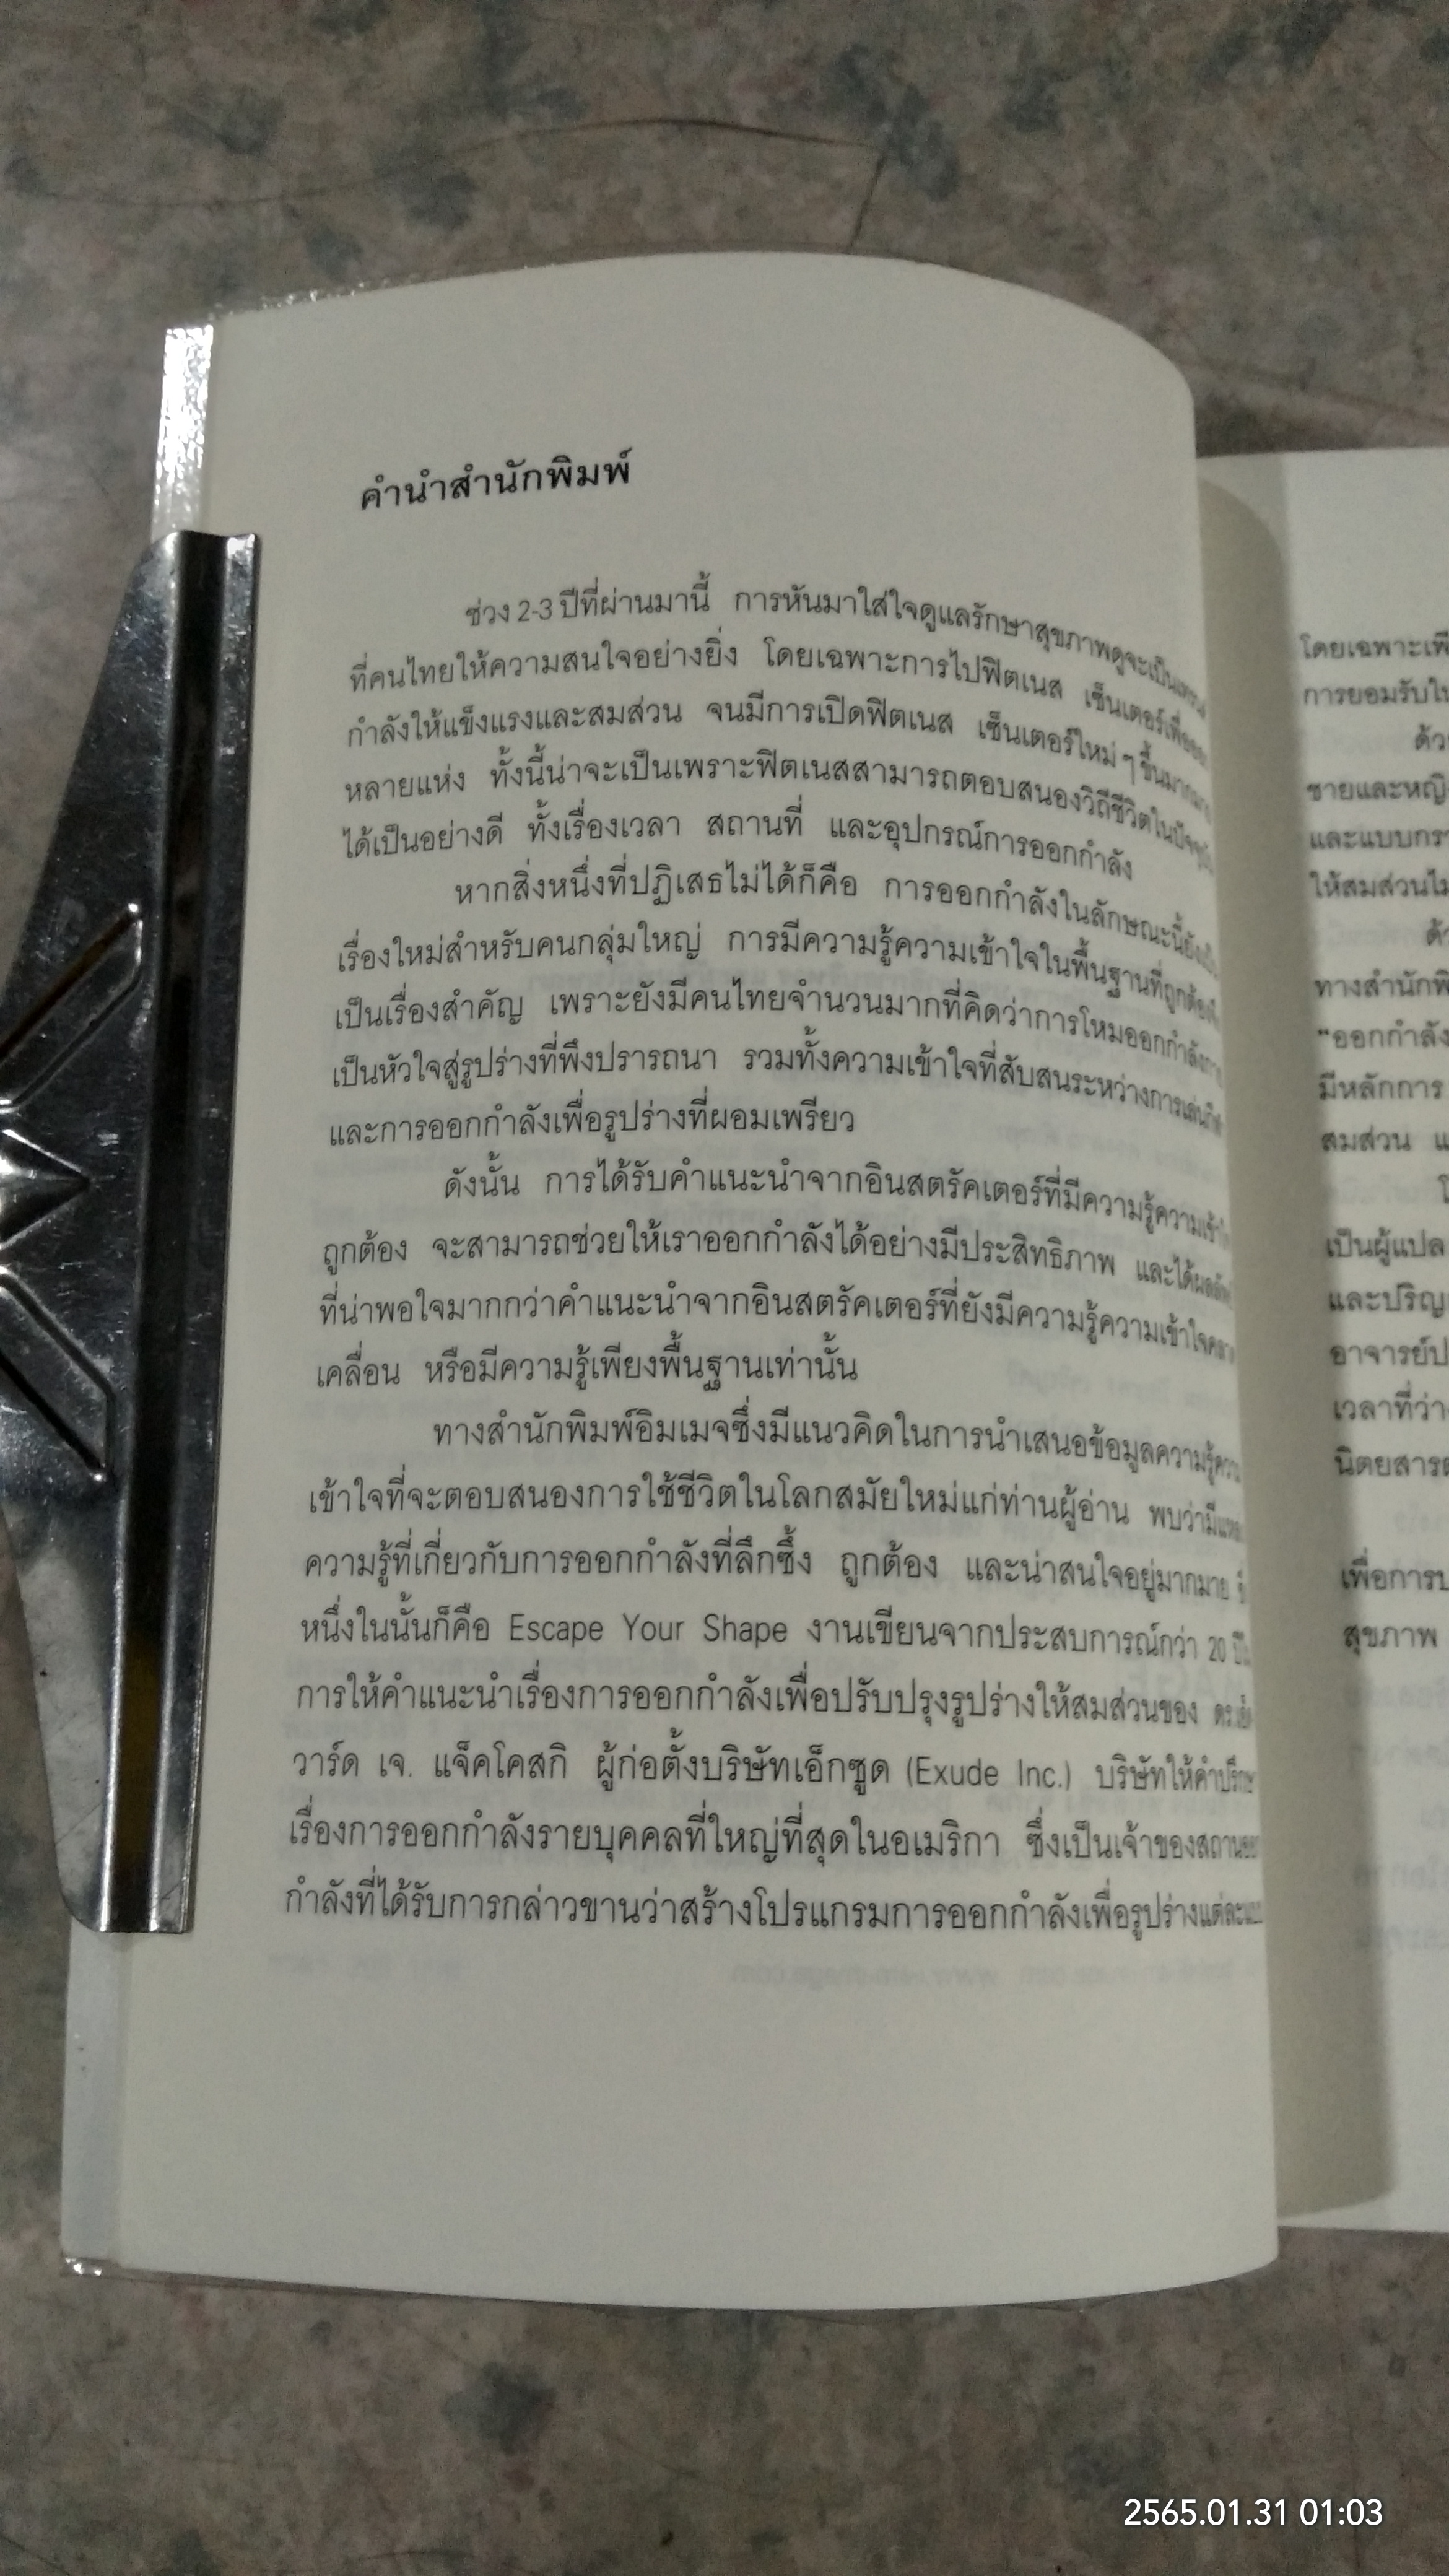 คำนำสำนักพิมพ์
ช่วง 2-3 ปีที่ผ่านมานี้ การหันมาใส่ใจดูแลรักษาสุขภาพดูจะเป็น
ที่คนไทยให้ความสนใจอย่างยิ่ง โดยเฉพาะการไปฟิตเนส เซ็นเตอร์เพื่อ
กำลังให้แข็งแรงและสมส่วน จนมีการเปิดฟิตเนส เซ็นเตอร์ใหม่ ๆ ขึ้น
หลายแห่ง ทั้งนี้น่าจะเป็นเพราะฟิตเนสสามารถตอบสนองวิถีชีวิตใน
ได้เป็นอย่างดี ทั้งเรื่องเวลา สถานที่ และอุปกรณ์การออกกำลัง
หากสิ่งหนึ่งที่ปฏิเสธไม่ได้ก็คือ การออกกำลังในลักษณะนี้
เรื่องใหม่สำหรับคนกลุ่มใหญ่ การมีความรู้ความเข้าใจในพื้นฐานที่ถูกต้อง
เป็นเรื่องสำคัญ เพราะยังมีคนไทยจำนวนมากที่คิดว่าการโหมออกกำลัง
เป็นหัวใจสู่รูปร่างที่พึงปรารถนา รวมทั้งความเข้าใจที่สับสนระหว่างการเล่น
และการออกกำลังเพื่อรูปร่างที่ผอมเพรียว
ดังนั้น การได้รับคำแนะนำจากอินสตรัคเตอร์ที่มีความรู้ความ
ถูกต้อง จะสามารถช่วยให้เราออกกำลังได้อย่างมีประสิทธิภาพ และได้
ที่น่าพอใจมากกว่าคำแนะนำจากอินสตรัคเตอร์ที่ยังมีความรู้ความเข้าใจ
เคลื่อน หรือมีความรู้เพียงพื้นฐานเท่านั้น
ทางสำนักพิมพ์อิมเมจซึ่งมีแนวคิดในการนำเสนอข้อมูลความรู้
เข้าใจที่จะตอบสนองการใช้ชีวิตในโลกสมัยใหม่แก่ท่านผู้อ่าน พบว่ามี
ความรู้ที่เกี่ยวกับการออกกำลังที่ลึกซึ้ง ถูกต้อง และน่าสนใจอยู่มากมาย
หนึ่งในนั้นก็คือ Escape Your Shape งานเขียนจากประสบการณ์กว่า 20
การให้คำแนะนำเรื่องการออกกำลังเพื่อปรับปรุงรูปร่างให้สมส่วนของ
วาร์ด เจ. แจ็คโคสกิ ผู้ก่อตั้งบริษัทเอ็กซูด (Exude Inc.) บริษัทให้คำ
เรื่องการออกกำลังรายบุคคลที่ใหญ่ที่สุดในอเมริกา ซึ่งเป็นเจ้าของ
กำลังที่ได้รับการกล่าวขานว่าสร้างโปรแกรมการออกกำลังเพื่อรูปร่างแต่ละ
โดยเฉพาะ
การยอมรับ
ชายและ
และแบบ
ให้สมส่วน
ทาง
"ออกกำลัง
มีหลักการ
สมส่วน
เป็นผู้แปล
และ
อาจารย์
เวลาที่
นิตยสาร
เพื่อการ
สุขภาพ
2565.01.31 01:03